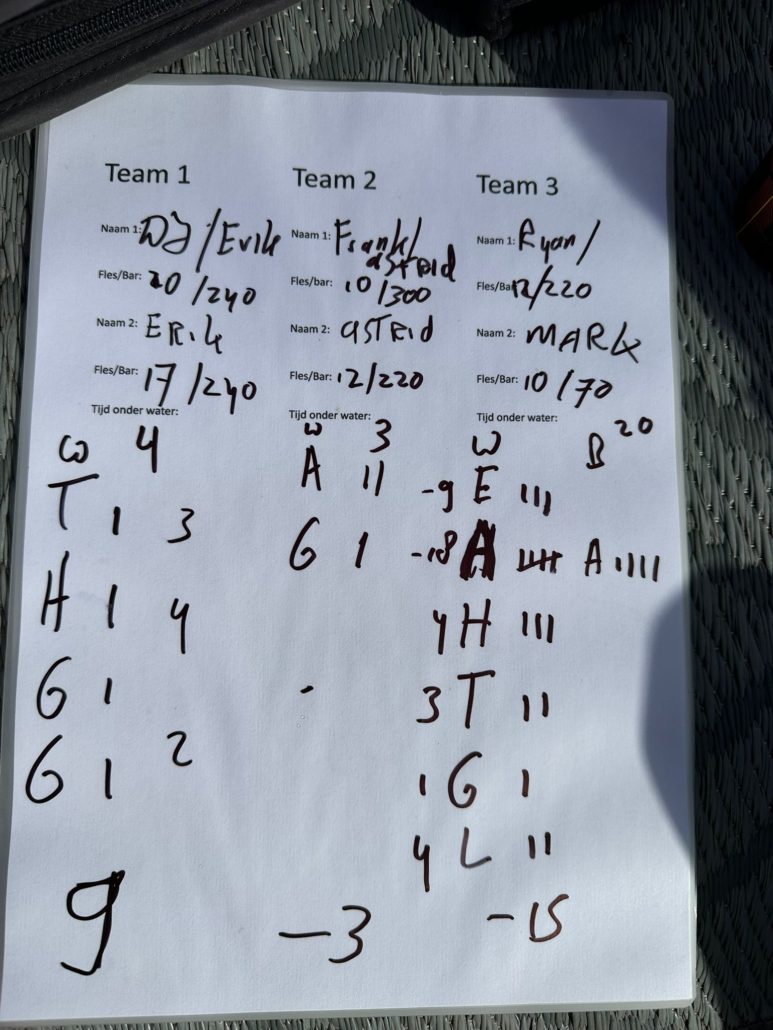 Team 1
Naam 1: DJ/Erik
Fles/Bar: 20/240
Naam 2: ERik
Fles/Bar: 17/240
Tijd onder water:
W 4
T 1 3
H 1 4
G 1
G 1 2
9
Team 2
Naam 1: Frank/
aSTRID
Fles/bar: 10/300
Naam 2: aSTRid
Fles/Bar: 12/220
Tijd onder water:
W 3
A II
G 1
-3
Team 3
Naam 1: Ryan/
Fles/Bar 12/220
Naam 2: MARK
Fles/Bar: 10/70
Tijd onder water:
W B 20
-9 E III
-18 A IIII A IIII
4 H III
3 T II
1 G I
4 L II
-15